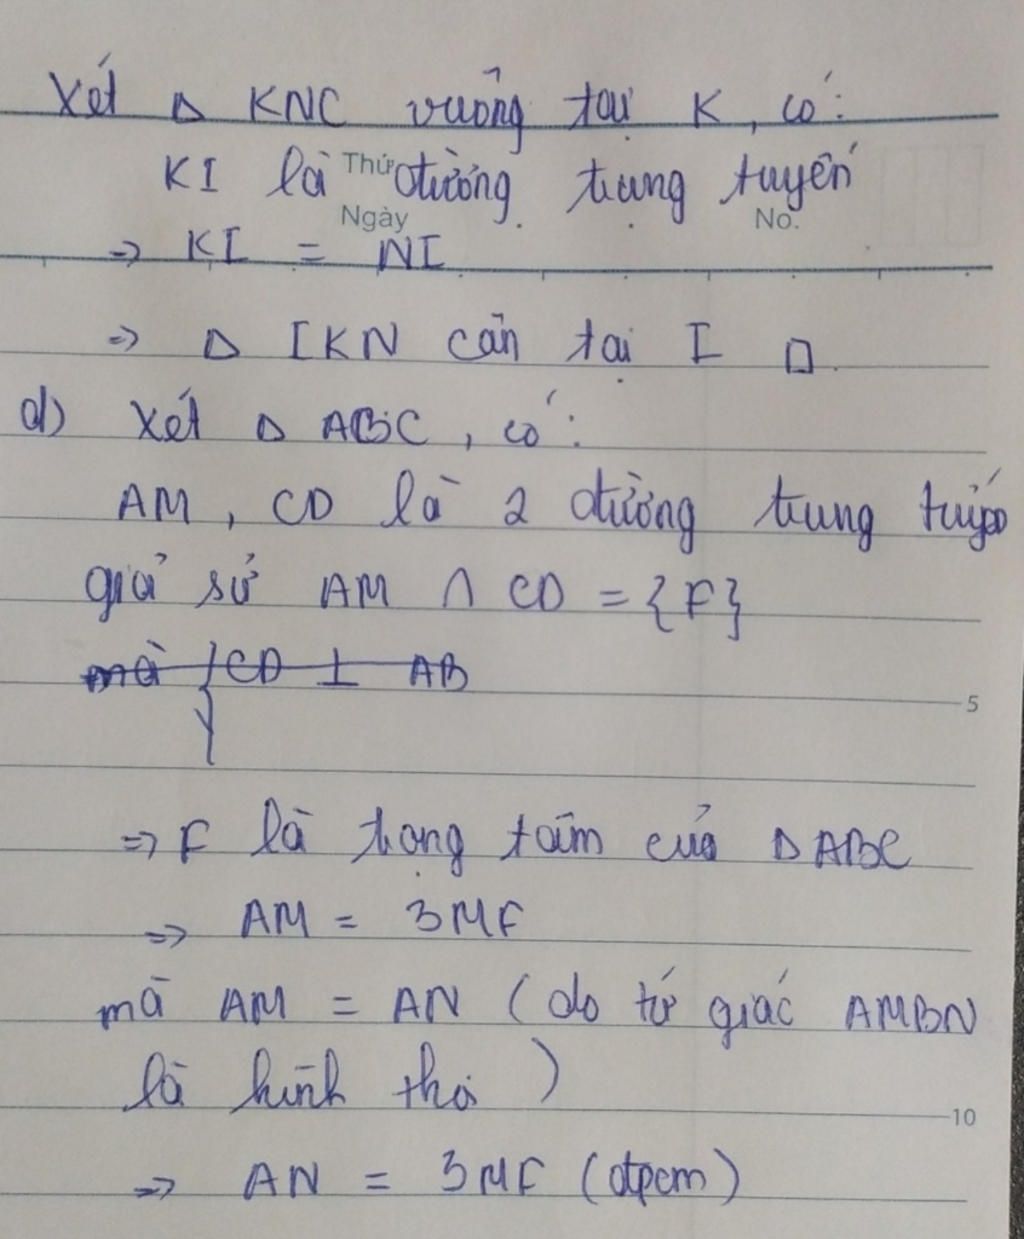 Xét Δ KNC vuông tại K, có:
Thứ
KI là đường trung tuyến
Ngày No.
=> KI = NI
=> Δ IKN cân tại I □
d) Xét Δ ABC, có:
AM, CD là 2 đường trung tuyến
giả sử AM ∩ CD = {F}
mà { CD ⊥ AB
5
=> F là trọng tâm của Δ ABC
=> AM = 3MF
mà AM = AN (do tứ giác AMBN
là hình thoi)
10
=> AN = 3MF (đpcm)